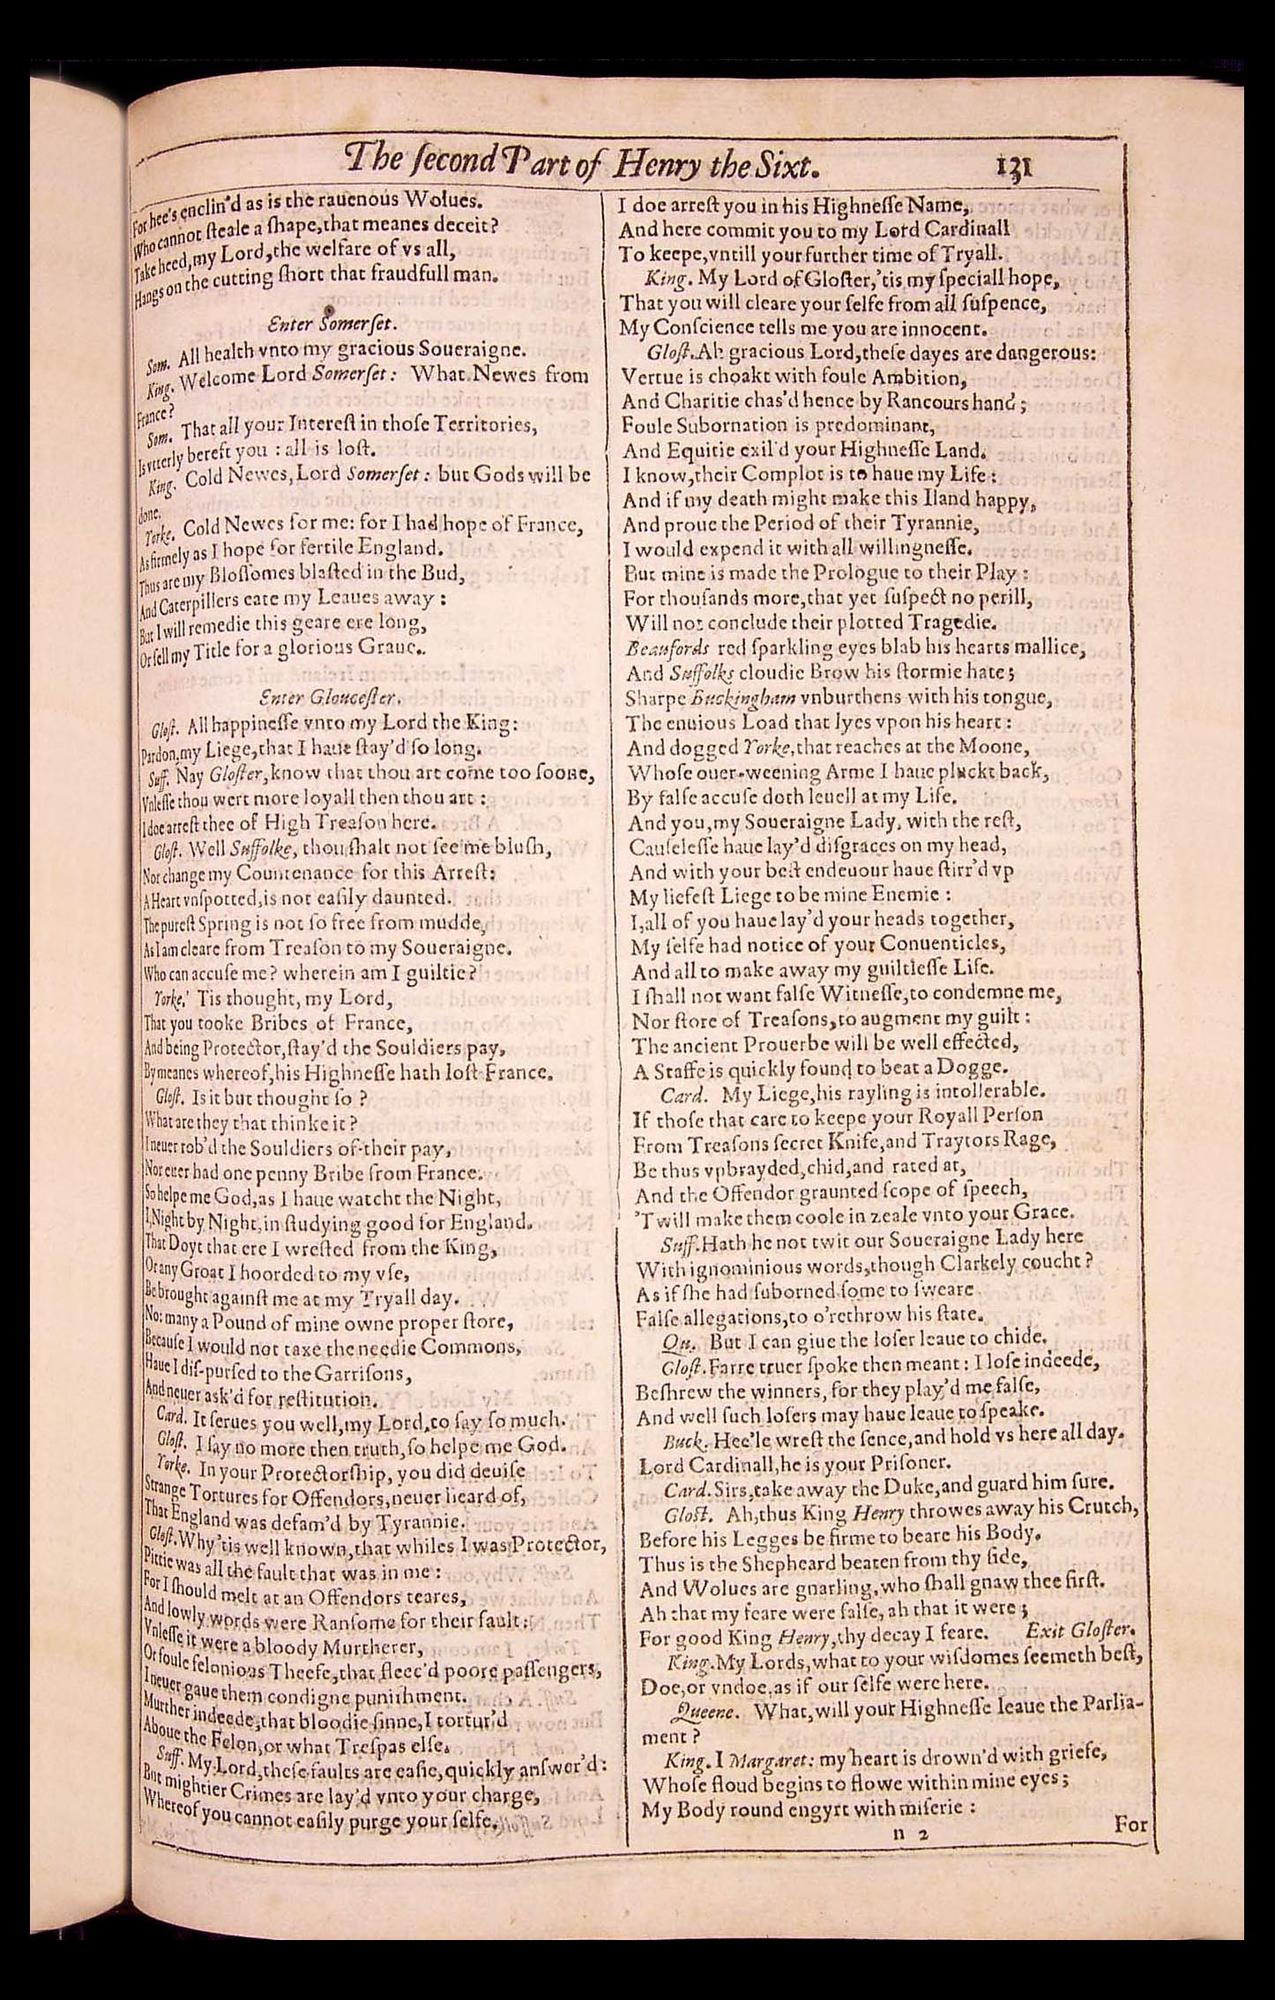 The ſecond Part of Henry the Sixt. 131
For hee's enclin'd as is the rauenous Wolues.
Who cannot ſteale a ſhape,that meanes deceit?
Take heed,my Lord,the welfare of vs all,
Hangs on the cutting ſhort that fraudfull man.
Enter Somerſet.
Som. All health vnto my gracious Soueraigne.
King. Welcome Lord Somerſet: What Newes from
France?
Som. That all your Intereſt in thoſe Territories,
Is vtterly bereft you : all is loſt.
King. Cold Newes,Lord Somerſet: but Gods will be
done.
Yorke. Cold Newes for me: for I had hope of France,
As firmely as I hope for fertile England.
Thus are my Bloſſomes blaſted in the Bud,
And Caterpillers eate my Leaues away :
But I will remedie this geare ere long,
Or ſell my Title for a glorious Graue.
Enter Glouceſter.
Gloſt. All happineſſe vnto my Lord the King:
Pardon,my Liege,that I haue ſtay'd ſo long.
Suff. Nay Gloſter,know that thou art come too ſoone,
Vnleſſe thou wert more loyall then thou art :
I doe arreſt thee of High Treaſon here.
Gloſt. Well Suffolke, thou ſhalt not ſee me bluſh,
Nor change my Countenance for this Arreſt:
A Heart vnſpotted,is not eaſily daunted.
The pureſt Spring is not ſo free from mudde,
As I am cleare from Treaſon to my Soueraigne.
Who can accuſe me? wherein am I guiltie?
Yorke.' Tis thought, my Lord,
That you tooke Bribes of France,
And being Protector,ſtay'd the Souldiers pay,
By meanes whereof,his Highneſſe hath loſt France.
Gloſt. Is it but thought ſo ?
What are they that thinke it ?
I neuer rob'd the Souldiers of their pay,
Nor euer had one penny Bribe from France.
So helpe me God,as I haue watcht the Night,
I,Night by Night,in ſtudying good for England.
That Doyt that ere I wreſted from the King,
Or any Groat I hoorded to my vſe,
Be brought againſt me at my Tryall day.
No: many a Pound of mine owne proper ſtore,
Becauſe I would not taxe the needie Commons,
Haue I diſ-purſed to the Garriſons,
And neuer ask'd for reſtitution.
Card. It ſerues you well,my Lord,to ſay ſo much.
Gloſt. I ſay no more then truth,ſo helpe me God.
Yorke. In your Protectorſhip, you did deuiſe
Strange Tortures for Offendors,neuer heard of,
That England was defam'd by Tyrannie.
Gloſt.Why 'tis well known,that whiles I was Protector,
Pittie was all the fault that was in me :
For I ſhould melt at an Offendors teares,
And lowly words were Ranſome for their fault:
Vnleſſe it were a bloody Murtherer,
Or foule felonious Theefe,that fleec'd poore paſſengers,
I neuer gaue them condigne puniſhment.
Murther indeede,that bloodie ſinne,I tortur'd
Aboue the Felon,or what Treſpas elſe.
Suff. My Lord,theſe faults are eaſie,quickly anſwer'd:
But mightier Crimes are lay'd vnto your charge,
Whereof you cannot eaſily purge your ſelfe.
I doe arreſt you in his Highneſſe Name,
And here commit you to my Lord Cardinall
To keepe,vntill your further time of Tryall.
King. My Lord of Gloſter,'tis my ſpeciall hope,
That you will cleare your ſelfe from all ſuſpence,
My Conſcience tells me you are innocent.
Gloſt.Ah gracious Lord,theſe dayes are dangerous:
Vertue is choakt with foule Ambition,
And Charitie chas'd hence by Rancours hand ;
Foule Subornation is predominant,
And Equitie exil'd your Highneſſe Land.
I know,their Complot is to haue my Life :
And if my death might make this Iland happy,
And proue the Period of their Tyrannie,
I would expend it with all willingneſſe.
But mine is made the Prologue to their Play :
For thouſands more,that yet ſuſpect no perill,
Will not conclude their plotted Tragedie.
Beaufords red ſparkling eyes blab his hearts mallice,
And Suffolks cloudie Brow his ſtormie hate;
Sharpe Buckingham vnburthens with his tongue,
The enuious Load that lyes vpon his heart :
And dogged Yorke,that reaches at the Moone,
Whoſe ouer-weening Arme I haue pluckt back,
By falſe accuſe doth leuell at my Life.
And you,my Soueraigne Lady, with the reſt,
Cauſeleſſe haue lay'd diſgraces on my head,
And with your beſt endeuour haue ſtirr'd vp
My liefeſt Liege to be mine Enemie :
I,all of you haue lay'd your heads together,
My ſelfe had notice of your Conuenticles,
And all to make away my guiltleſſe Life.
I ſhall not want falſe Witneſſe,to condemne me,
Nor ſtore of Treaſons,to augment my guilt :
The ancient Prouerbe will be well effected,
A Staffe is quickly found to beat a Dogge.
Card. My Liege,his rayling is intollerable.
If thoſe that care to keepe your Royall Perſon
From Treaſons ſecret Knife,and Traytors Rage,
Be thus vpbrayded,chid,and rated at,
And the Offendor graunted ſcope of ſpeech,
'Twill make them coole in zeale vnto your Grace.
Suff.Hath he not twit our Soueraigne Lady here
With ignominious words,though Clarkely coucht ?
As if ſhe had ſuborned ſome to ſweare
Falſe allegations,to o'rethrow his ſtate.
Qu. But I can giue the loſer leaue to chide.
Gloſt.Farre truer ſpoke then meant : I loſe indeede,
Beſhrew the winners, for they play'd me falſe,
And well ſuch loſers may haue leaue to ſpeake.
Buck. Hee'le wreſt the ſence,and hold vs here all day.
Lord Cardinall,he is your Priſoner.
Card.Sirs,take away the Duke,and guard him ſure.
Gloſt. Ah,thus King Henry throwes away his Crutch,
Before his Legges be firme to beare his Body.
Thus is the Shepheard beaten from thy ſide,
And Wolues are gnarling,who ſhall gnaw thee firſt.
Ah that my feare were falſe, ah that it were ;
For good King Henry,thy decay I feare. Exit Gloſter.
King.My Lords,what to your wiſdomes ſeemeth beſt,
Doe,or vndoe,as if our ſelfe were here.
Queene. What,will your Highneſſe leaue the Parlia-
ment ?
King. I Margaret: my heart is drown'd with griefe,
Whoſe floud begins to flowe within mine eyes ;
My Body round engyrt with miſerie :
n 2 For